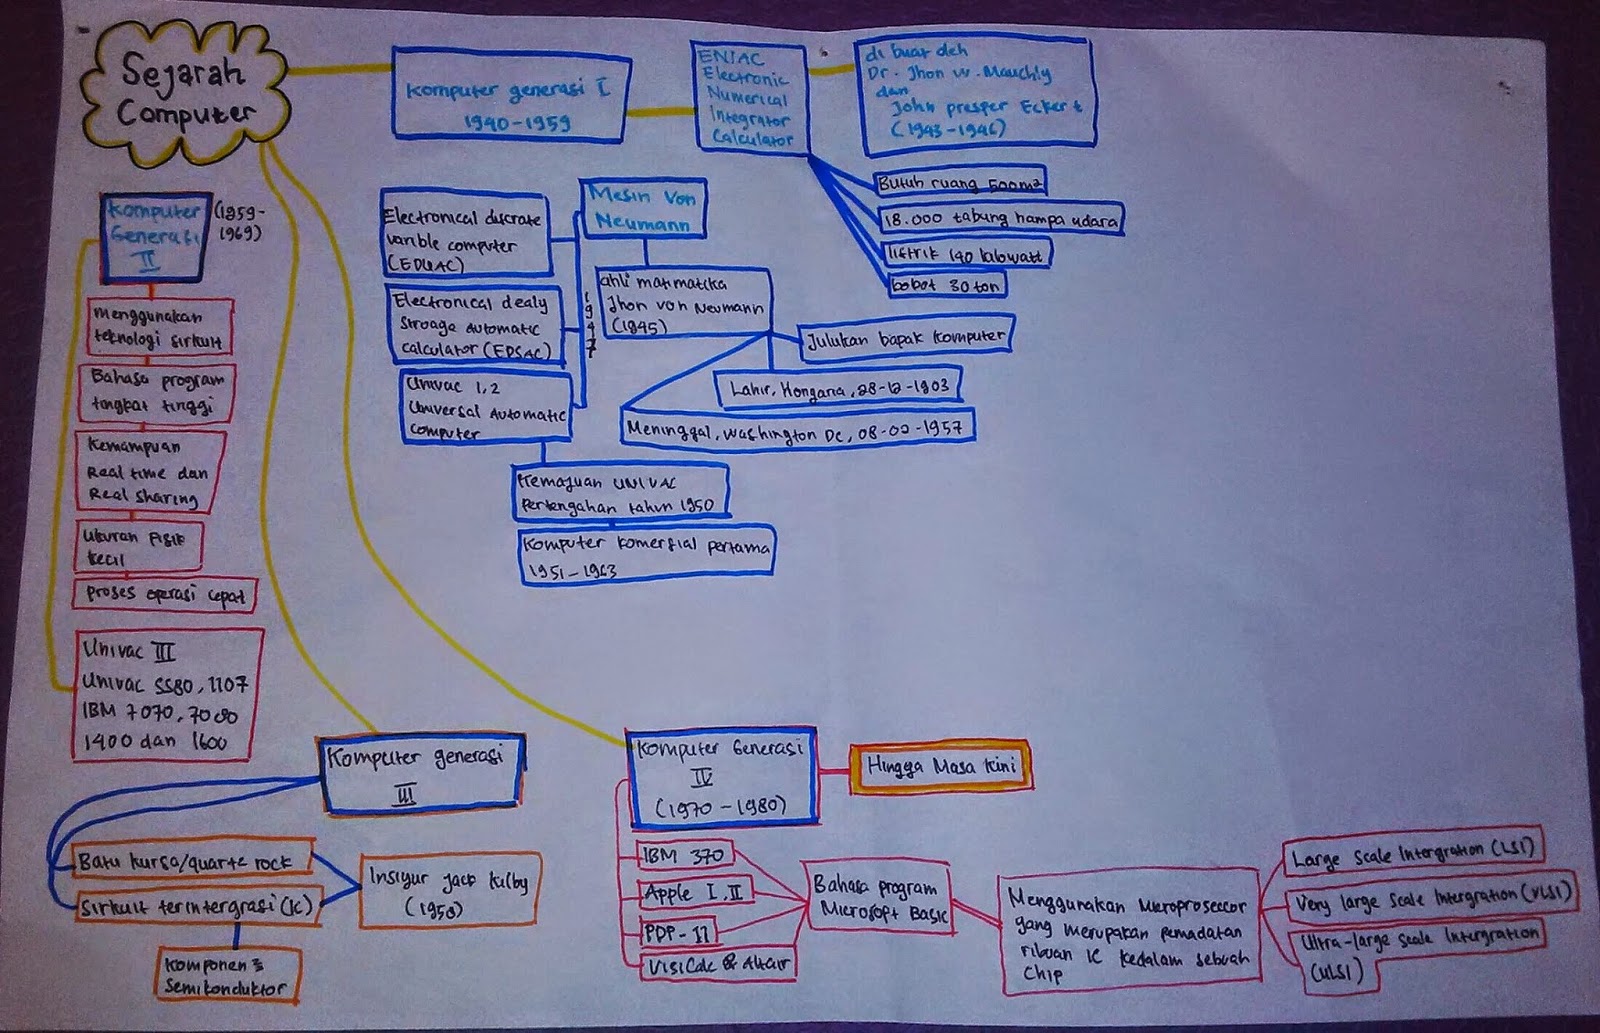 Sejarah
Computer
Komputer generasi I
1940-1959
ENIAC
Electronic
Numerical
Integrator
Calculator
di buat oleh
Dr. Jhon W. Mauchly
dan
John presper Eckert
(1943-1946)
Butuh ruang 500m²
18.000 tabung hampa udara
listrik 140 kilowatt
bobot 30 ton
Mesin Von
Neumann
1947
Electronical discrate
varible computer
(EDUAC)
Electronical dealy
Stroage automatic
calculator (EDSAC)
Univac 1,2
Universal Automatic
Computer
Kemajuan UNIVAC
Pertengahan tahun 1950
Komputer komersial pertama
1951-1963
ahli matmatika
Jhon von Neumann
(1945)
Julukan bapak komputer
Lahir, Hongaria, 28-12-1903
Meninggal, Washington DC, 08-02-1957
Komputer
Generasi
II
(1959-
1969)
Menggunakan
teknologi sirkuit
Bahasa program
tingkat tinggi
Kemampuan
Real time dan
Real sharing
Ukuran fisik
kecil
proses operasi cepat
Univac III
Univac SS80, 1107
IBM 7070, 7080
1400 dan 1600
Komputer generasi
III
Batu kursa/quartz rock
Sirkuit terintergrasi (IC)
Insiyur jack kilby
(1958)
Komponen²
Semikonduktor
Komputer Generasi
IV
(1970-1980)
Hingga Masa kini
IBM 370
Apple I, II
PDP-11
VisiCalc & Altair
Bahasa program
Microsoft Basic
Menggunakan Microproseccor
yang merupakan pemadatan
ribuan IC kedalam sebuah
Chip
Large Scale Intergration (LSI)
Very large Scale Intergration (VLSI)
Ultra-large Scale Intergration
(ULSI)